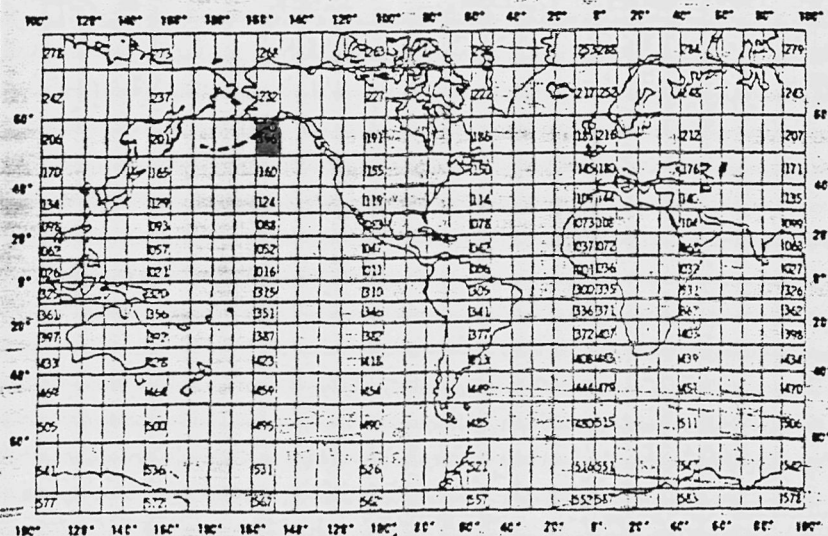 100° 120° 140° 160° 180° 160° 140° 120° 100° 80° 60° 40° 20° 0° 20° 40° 60° 80° 100°
278 273 268 263 258 253 288 284 279
242 237 232 227 222 217 252 248 243
60° 60°
206 201 196 191 186 181 216 212 207
170 165 160 155 150 145 180 176 171
40° 40°
134 129 124 119 114 109 144 140 135
098 093 088 083 078 073 108 104 099
20° 20°
062 057 052 047 042 037 072 068 063
026 021 016 011 006 001 036 032 027
0° 0°
325 320 315 310 305 300 335 331 326
361 356 351 346 341 336 371 367 362
20° 20°
397 392 387 382 377 372 407 403 398
433 428 423 418 413 408 443 439 434
40° 40°
469 464 459 454 449 444 479 475 470
505 500 495 490 485 480 515 511 506
60° 60°
541 536 531 526 521 516 551 547 542
577 572 567 562 557 552 587 583 578
100° 120° 140° 160° 180° 160° 140° 120° 100° 80° 60° 40° 20° 0° 20° 40° 60° 80° 100°